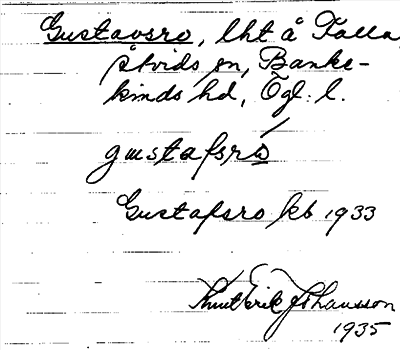 Gustavsro, lht å Falla,
Åtvids sn, Banke-
kinds hd, Ögl. l.
gustafsrò
Gustafsro kb 1933
Knut Erik Johansson
1935